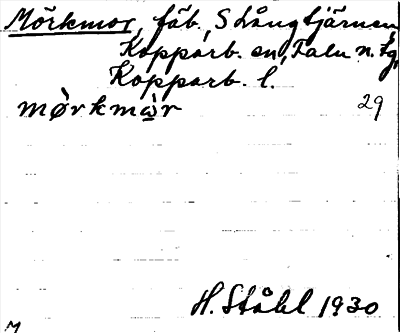 Mörkmor, fäb., S Långtjärnen,
Kopparb. sn, Falu n. tg,
Kopparb. l.
mørkmàr 29
H. Ståhl 1930
M